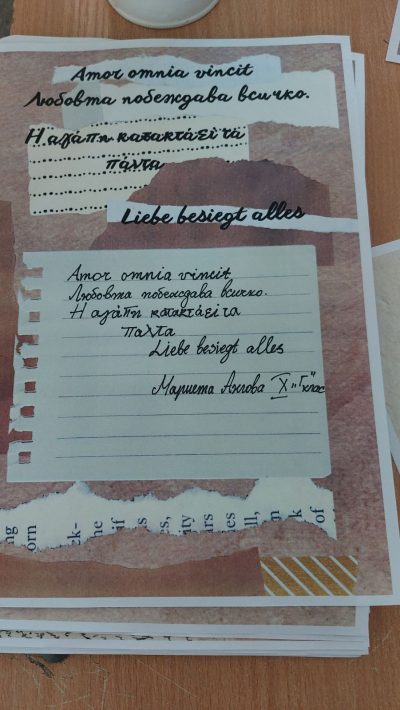 Amor omnia vincit
Любовта побеждава всичко.
Η αγάπη κατακτά εί τα
πάντα
Liebe besiegt alles
Amor omnia vincit
Любовта побеждава всичко.
Η αγάπη κατακτά εί τα
πάντα
Liebe besiegt alles
Мариета Ангова IX "Г" клас
ng
orn
ek-
he
if
s
es,
ity
ars
nes
ll,
m
k
of